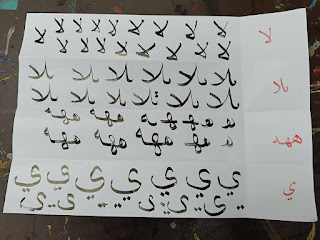 لا لا لا لا لا لا لا لا
لا لا لا لا لا لا لا لا لا
بلا بلا بلا بلا بلا بلا بلا
بلا بلا بلا بلا بلا بلا بلا
ه ههه ههه ههه
ه ههه ههه ههه ههه
ي ي ي ي ي ي ي
ي ي ي ي ي ي
لا
بلا
ههه
ي